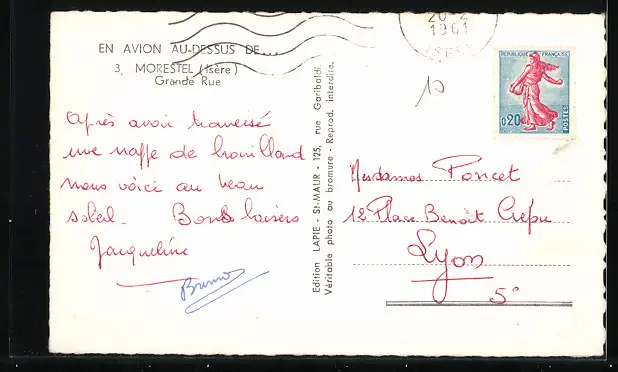 EN AVION AU-DESSUS DE...
3, MORESTEL (Isère)
Grande Rue
Après avoir traversé
une nappe de brouillard
nous voici au beau
soleil. Bons baisers
Jacqueline
Bruno
Edition LAPIE - St-MAUR - 125, rue Garibaldi
Véritable photo au bromure - Reprod. interdite.
20-2
1961
ISERE
10
REPUBLIQUE FRANÇAISE
0,20
POSTES
Mesdames Poncet
12 Place Benoit Crépu
Lyon
5e